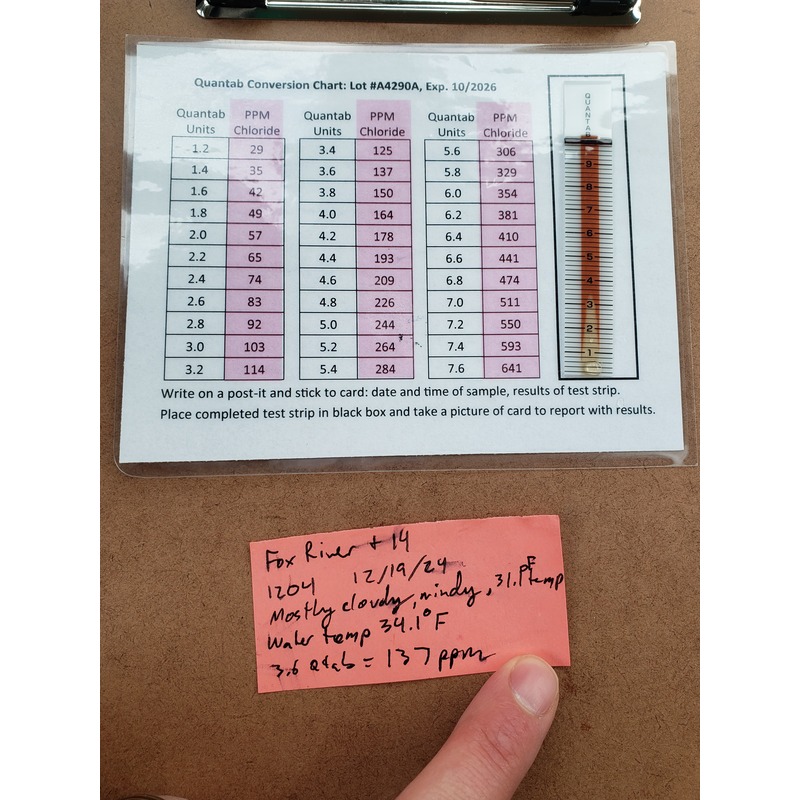 Quantab Conversion Chart: Lot #A4290A, Exp. 10/2026
Quantab Units PPM Chloride Quantab Units PPM Chloride Quantab Units PPM Chloride
1.2 29 3.4 125 5.6 306
1.4 35 3.6 137 5.8 329
1.6 42 3.8 150 6.0 354
1.8 49 4.0 164 6.2 381
2.0 57 4.2 178 6.4 410
2.2 65 4.4 193 6.6 441
2.4 74 4.6 209 6.8 474
2.6 83 4.8 226 7.0 511
2.8 92 5.0 244 7.2 550
3.0 103 5.2 264 7.4 593
3.2 114 5.4 284 7.6 641
QUANTAB
9
8
7
6
5
4
3
2
1
Write on a post-it and stick to card: date and time of sample, results of test strip.
Place completed test strip in black box and take a picture of card to report with results.
Fox River + 14
1204 12/19/24
Mostly cloudy, windy, 31.1°F temp
Water temp 34.1°F
3.6 qtab = 137 ppm